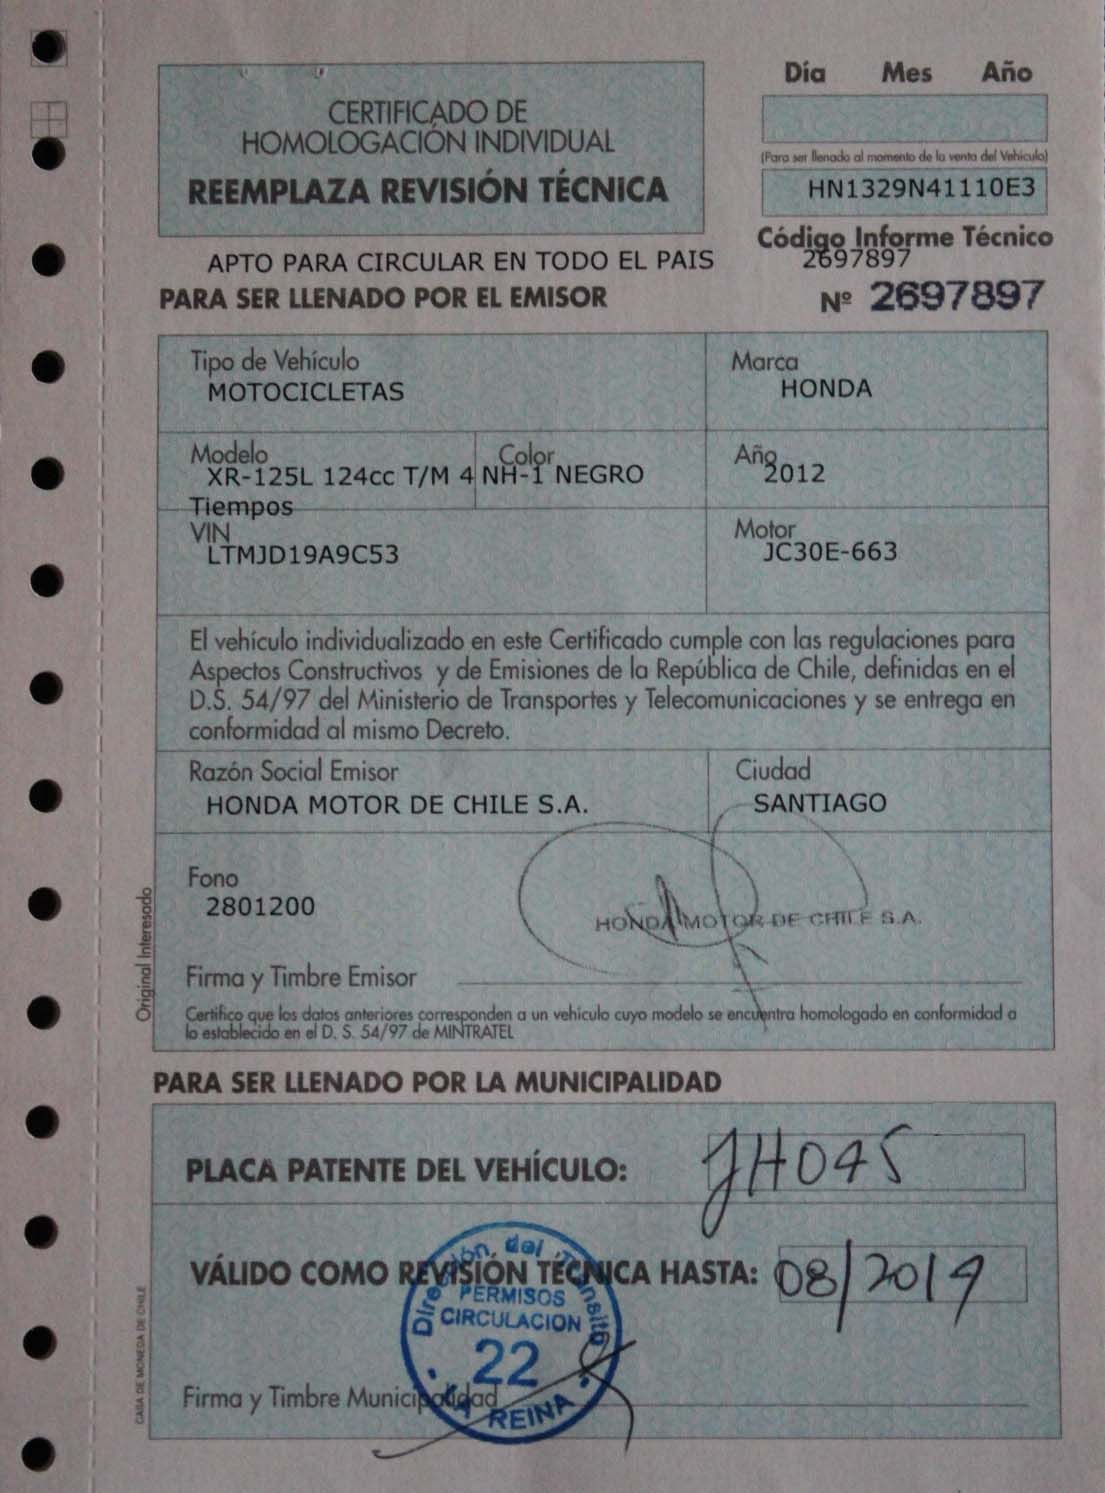 Día Mes Año
CERTIFICADO DE
HOMOLOGACIÓN INDIVIDUAL
REEMPLAZA REVISIÓN TÉCNICA
(Para ser llenado al momento de la venta del Vehículo)
HN1329N41110E3
Código Informe Técnico
2697897
APTO PARA CIRCULAR EN TODO EL PAIS
PARA SER LLENADO POR EL EMISOR
Nº 2697897
Tipo de Vehículo
MOTOCICLETAS
Marca
HONDA
Modelo
XR-125L 124cc T/M 4
Tiempos
Color
NH-1 NEGRO
Año
2012
VIN
LTMJD19A9C53
Motor
JC30E-663
El vehículo individualizado en este Certificado cumple con las regulaciones para
Aspectos Constructivos y de Emisiones de la República de Chile, definidas en el
D.S. 54/97 del Ministerio de Transportes y Telecomunicaciones y se entrega en
conformidad al mismo Decreto.
Razón Social Emisor
HONDA MOTOR DE CHILE S.A.
Ciudad
SANTIAGO
Fono
2801200
HONDA MOTOR DE CHILE S.A.
Firma y Timbre Emisor
Certifico que los datos anteriores corresponden a un vehículo cuyo modelo se encuentra homologado en conformidad a
lo establecido en el D. S. 54/97 de MINTRATEL
Original Interesado
PARA SER LLENADO POR LA MUNICIPALIDAD
PLACA PATENTE DEL VEHÍCULO:
JH045
VÁLIDO COMO REVISIÓN TÉCNICA HASTA:
08/2014
Dirección del Tránsito
PERMISOS
CIRCULACION
22
LA REINA
Firma y Timbre Municipalidad
CASA DE MONEDA DE CHILE